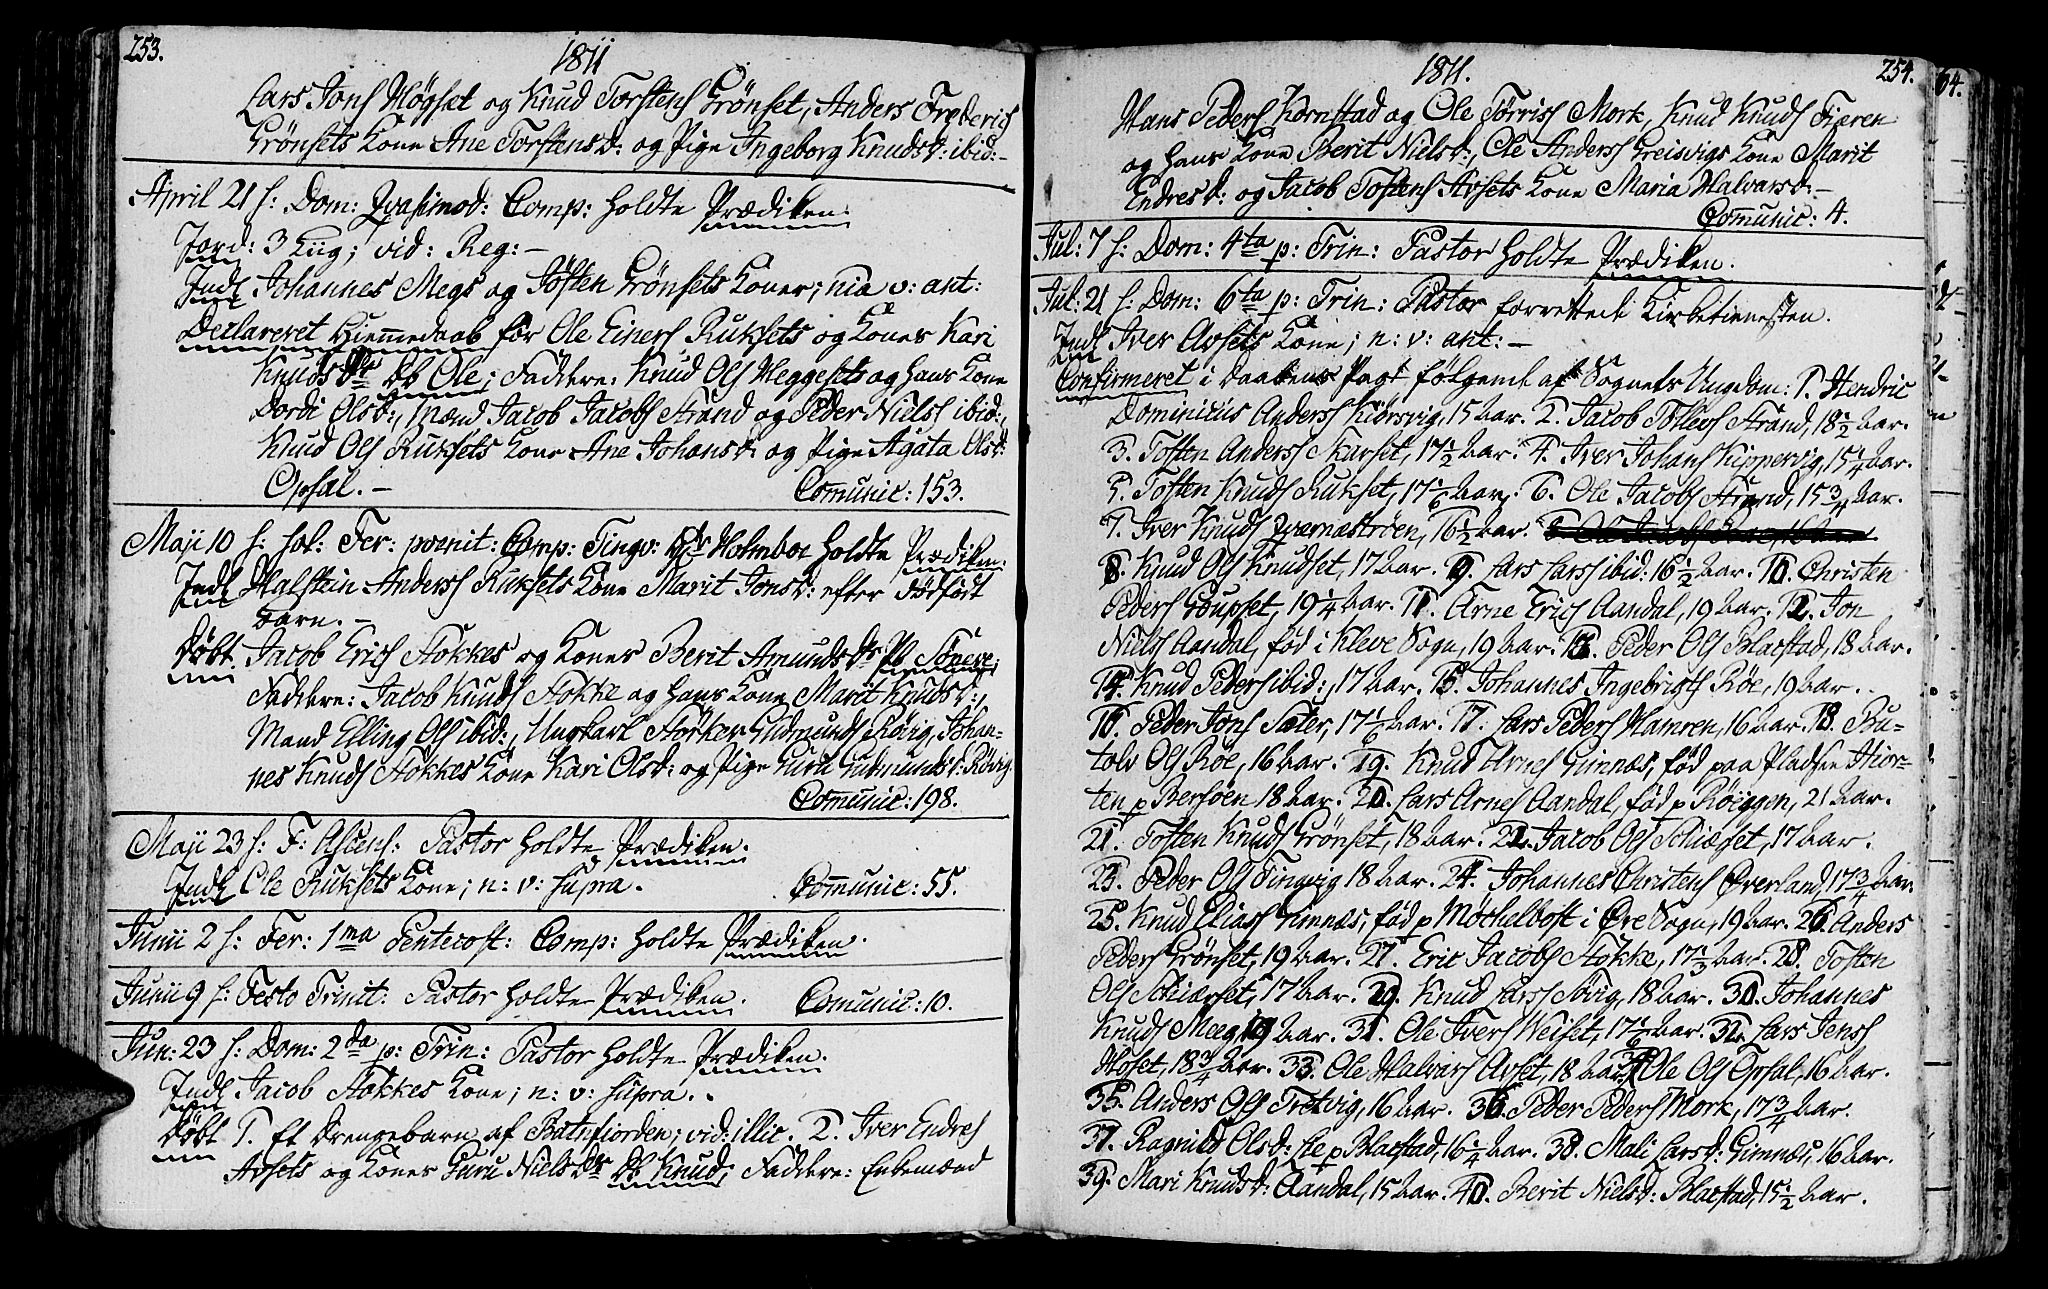 253.
1811
Lars Jons Høgset og Knud Torstens Grönset, Anders Frederics
Grönsets Kone Ane Torstensd: og Pige Ingeborg Knudsd: ibid:-
April 21 h: Dom: Qvasimod: Comp: holdte Prædiken.
Jord: 3 Liig; vid: Reg:-
Indl Johannes Megs og Tösten Grönsets Koner; nia v: ant:
Declareret Hiemmedaab for Ole Einers Ruksets og Kones Kari
Knudsdr db Ole; Faddere: Knud Ols Meggesets og hans Kone
Dordi Olsd:, Mænd Jacob Jacobs Strand og Peder Niels ibid:,
Knud Ols Ruksets Kone Ane Johansd: og Pige Agata Olsd:
Opsal.- Comunic: 153.
Maji 10 h: sol: Fer: poenit: Comp: Tingv: Hr Holmboe holdte Prædiken.
Indl Halstein Anderss Ruksets Kone Marit Jonsd: efter dödfödt
Barn.-
Döbt Jacob Erics Stokkes og Kones Berit Amundsdr Pb Sönnve;
Faddere: Jacob Knuds Stokke og hans Kone Marit Knudsd:,
Mand Elling Ols ibid:, Ungkarl Störker Gudmunds Rövig, Johan-
nes Knuds Stokkes Kone Kari Olsd: og Pige Guru Gudmundsd: Rövig.
Comunic: 198.
Maji 23 h: F: Ascens: Pastor holdte Prædiken.
Indl Ole Ruksets Kone; n: v: supra. Comunic: 55.
Junii 2 h: Fer: 1ma Pentecost: Comp: holdte Prædiken.
Junii 9 h: Festo Trinit: Pastor holdte Prædiken. Comunic: 10.
Jun: 23 h: Dom: 2da p: Trin: Pastor holdte Prædiken.
Indl Jacob Stokkes Kone; n: v: supra.
Döbt 1. Et Drengebarn af Batnfiorden; vid: illic. 2. Iver Endres
Avsets og Kones Guru Nielsdr db Knud, Faddere: Enkemænd
1811.
254.
Hans Peders Kornstad og Ole Törriss Mork, Knud Knuds Fiæren
og hans Kone Berit Nielsd:, Ole Anderss Greisvigs Kone Marit
Endresd: og Jacob Tostens Avsets Kone Maria Halvarsd:-
Comunic: 4.
Jul: 7 h: Dom: 4ta p: Trin: Pastor holdte Prædiken.
Jul: 21 h: Dom: 6ta p: Trin: Pastor forrettede Kirketienesten.
Indl Iver Avsets Kone; n: v: ant:-
Confirmeret i Daabens Pagt følgende af Sognets Ungdom: 1. Hendric
Dominicus Anderss Kiörsvig, 15 Aar. 2. Jacob Tollevs Strand, 18 1/2 Aar.
3. Tosten Anderss Skarset, 17 1/2 Aar. 4. Iver Johans Kippervig, 15 1/4 Aar.
5. Tosten Knuds Rukset, 17 1/6 Aar. 6. Ole Jacobs Strand, 15 3/4 Aar.
7. Iver Knuds Qverneströen, 16 1/2 Aar.
8. Knud Ols Knudset, 17 Aar. 9. Lars Larss ibid: 16 1/2 Aar. 10. Christen
Peders Goupset, 19 1/4 Aar. 11. Arne Erics Aandal, 19 Aar. 12. Jon
Niels Aandal, fød i Kleve Sogn, 19 Aar. 13. Peder Ols Blaestad, 18 Aar.
14. Knud Peders ibid:, 17 Aar. 15. Johannes Ingebrigts Röe, 19 Aar.
16. Peder Jons Sæter, 17 1/6 Aar. 17. Lars Peders Hamren, 16 Aar. 18. Bu-
tolv Ols Röe, 16 Aar. 19. Knud Arnes Gimnæs, fød paa Pladsen Hior-
ten p Bersöen 18 Aar. 20. Lars Arnes Aandal, fød p Röiggen, 21 Aar.
21. Tosten Knuds Grönset, 18 Aar. 22. Jacob Ols Schiærset, 17 Aar.
23. Peder Ols Tingvig 18 Aar. 24. Johannes Christens Överland, 17 3/4 Aar
25. Knud Eliass Gimnæs, fød p Möchelbost i Öre Sogn, 19 Aar. 26. Anders
Peders Grönset, 19 Aar. 27. Eric Jacobs Stokke, 17 1/3 Aar. 28. Tosten
Ols Schiærset, 17 Aar. 29. Knud Larss Sövig, 18 Aar. 30. Johannes
Knuds Meeg, 19 Aar. 31. Ole Ivers Weiset, 17 1/6 Aar. 32. Lars Jenss
Höset, 18 3/4 Aar. 33. Ole Halvars Avset, 18 Aar. 34 Ole Ols Opsal, 16 Aar.
35. Anders Ols Tretvig, 16 Aar. 36. Peder Peders Mork, 17 3/4 Aar.
37. Ragnild Olsd: Lie p Blaestad, 16 1/4 Aar. 38. Mali Larsd: Gimnæs, 16 Aar.
39. Mari Knudsd: Aandal, 15 Aar. 40. Berit Nielsd: Blaestad, 15 1/2 Aar.